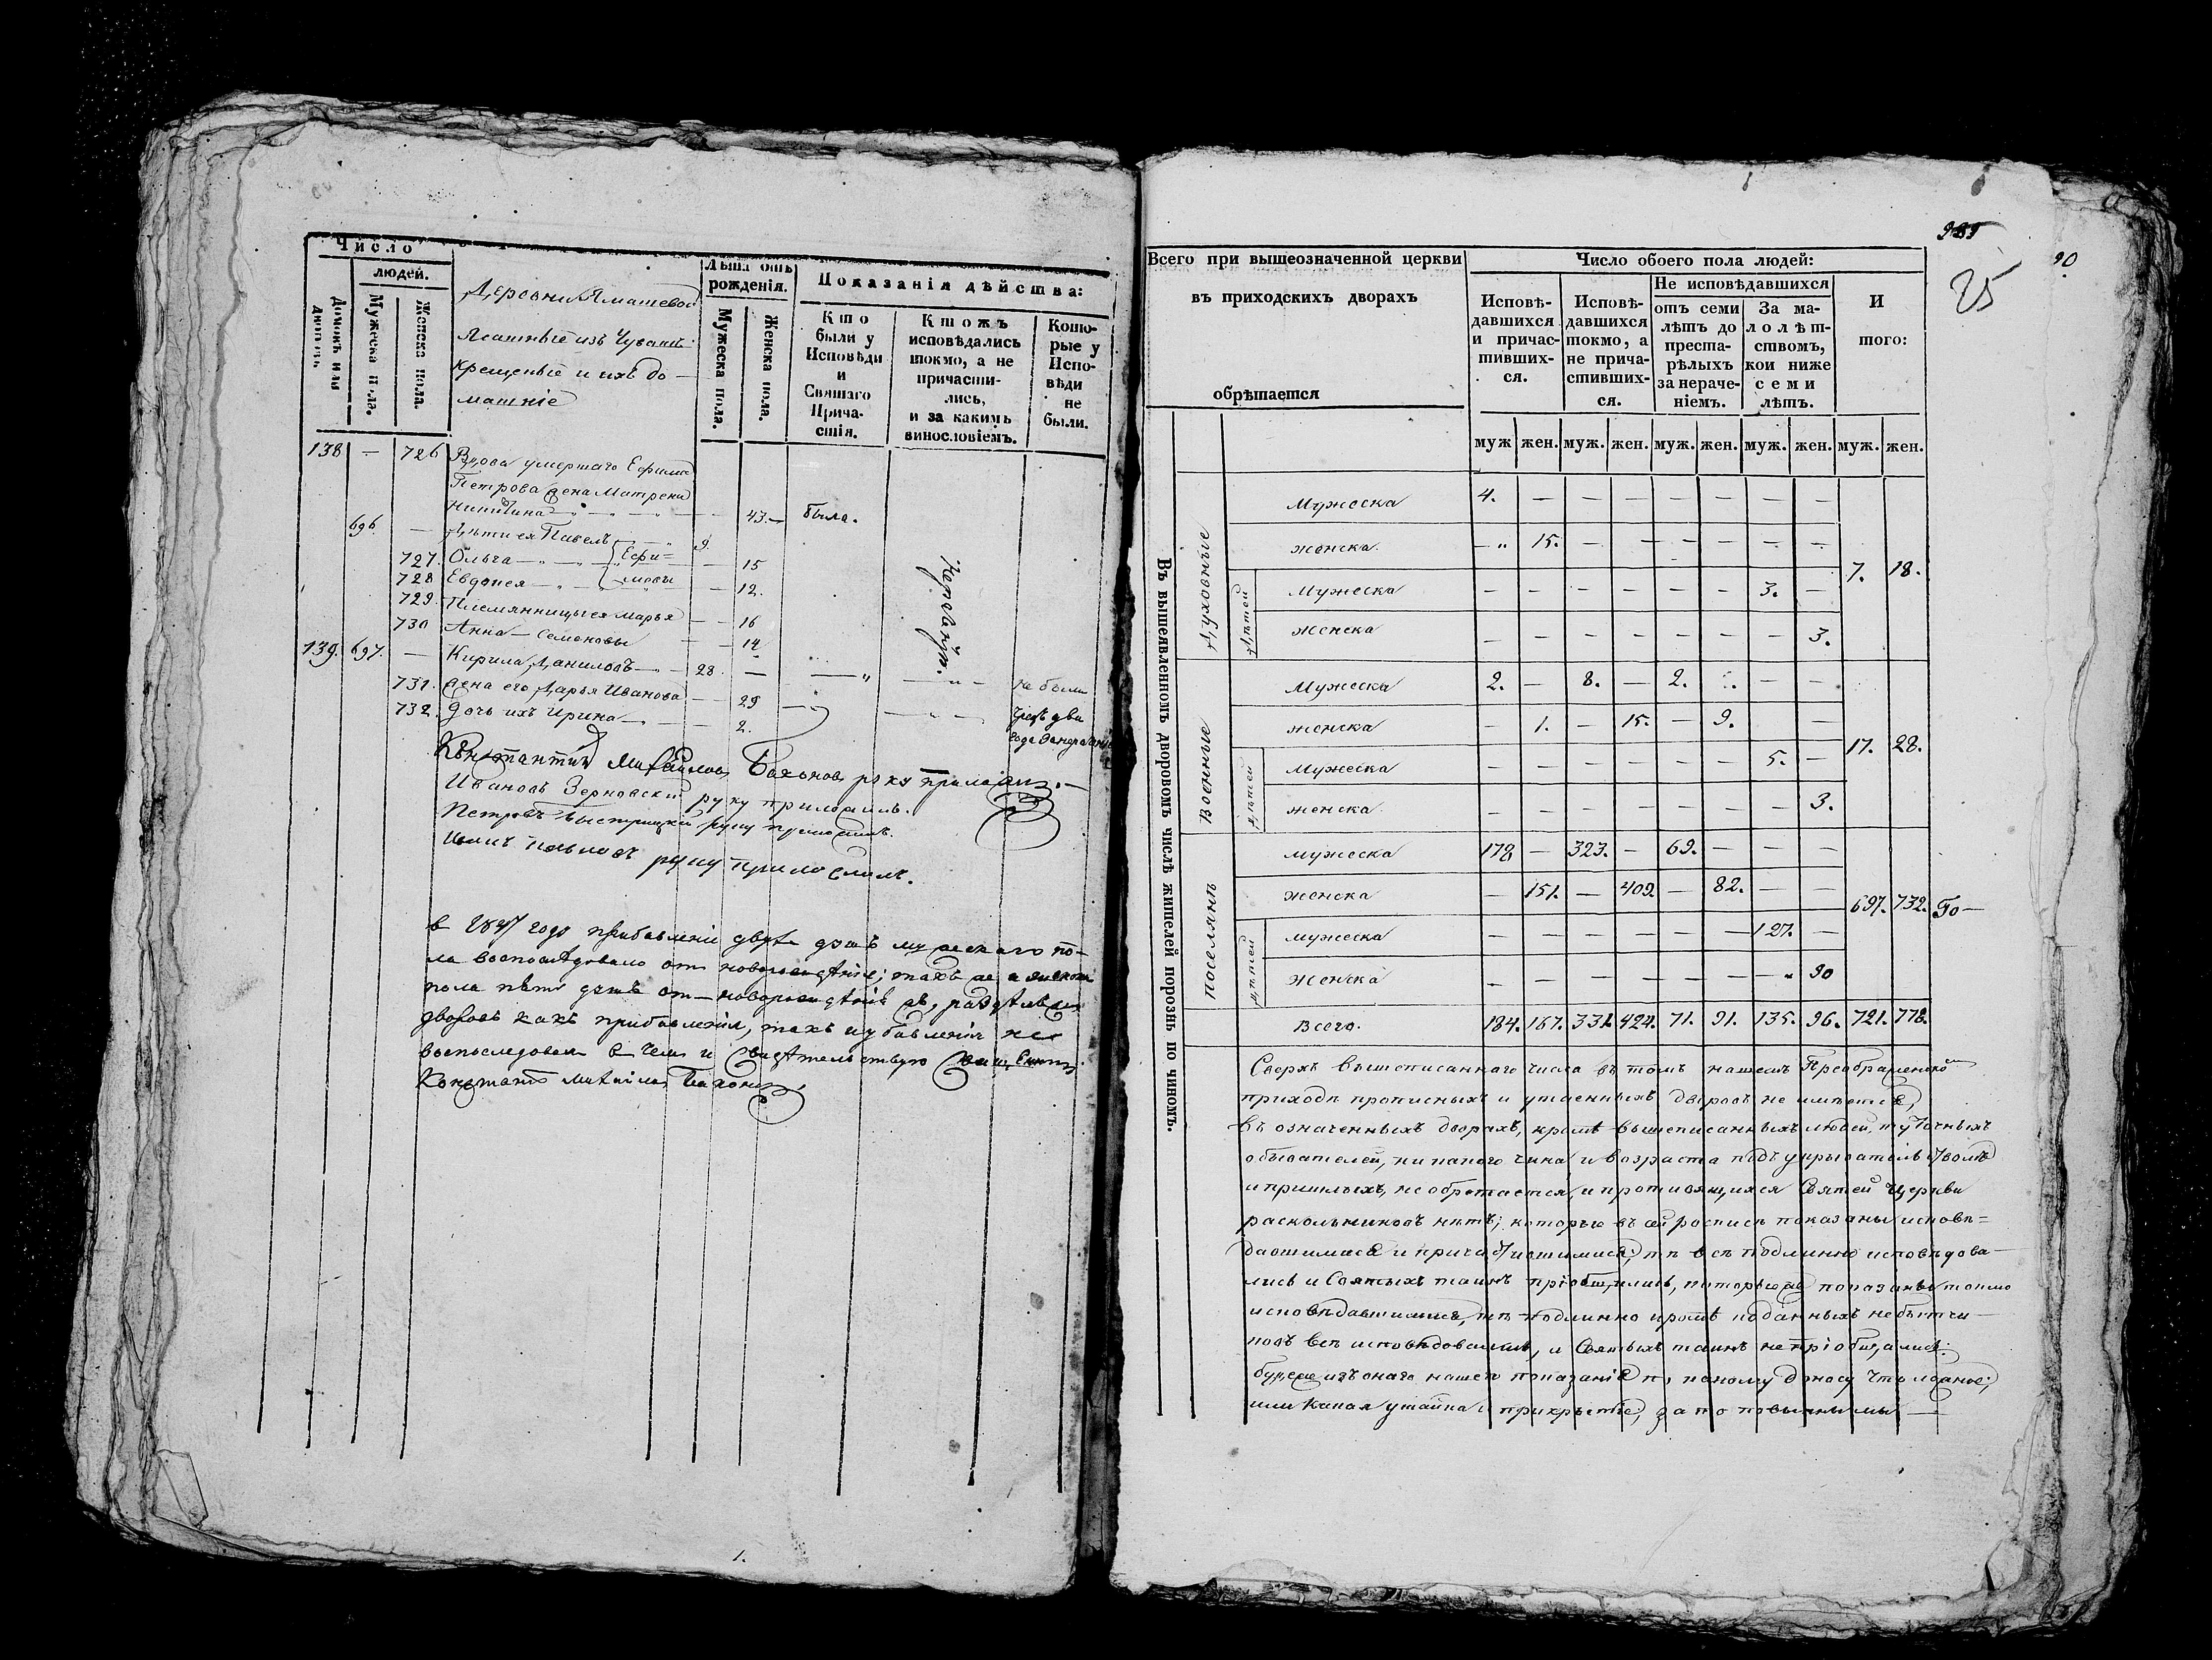 Число
людей.
Домовъ или дворовъ.
Мужеска пола.
Женска пола.
Деревни Ямашевой
Ясашные изъ Чувашъ
крещеные и ихъ до-
машніе
Лѣта отъ рожденія.
Мужеска пола.
Женска пола.
Показанія дѣйства:
Кто были у Исповѣди и Святаго Причастія.
Ктожъ исповѣдались токмо, а не причастились, и за какимъ винословіемъ.
Которые у Исповѣди не были.
138 — 726 Вдова умершаго Ефима
Петрова жена Матрена
Никитина — 43. — была.
696. — Дѣти ея Павелъ 9
727. Ольга — Ефи= — 15
728 Евдокея — мовы — 12.
729. Племянницы ея Марья — 16
730 Анна — Семеновы — 14
139. 697. — Кирила Даниловъ — 28. — не были
731. жена его Дарья Иванова — 29 чрезъ два
732. дочь ихъ Ирина — 2. года
Константинъ Михайловъ руку приложилъ. —
Ивановъ Зерновскій руку приложилъ.
Петровъ Быстрицкій руку приложилъ.
руку приложилъ.
в 1847 года прибавленіе двухъ душъ мужескаго по-
ла воспослѣдовало от новорожденія; такъ же и женска
пола пяти душъ от новорожденія
дворовъ какъ прибавленія, такъ и убавленія не
воспоследовало в чемъ и свидѣтельствую священникъ
Михайловъ
1.
985
25
90
Всего при вышеозначенной церкви
въ приходскихъ дворахъ
обрѣтается
Число обоего пола людей:
Исповѣдавшихся и причастившихся.
Исповѣдавшихся токмо, а не причастившихся.
Не исповѣдавшихся
отъ семи лѣтъ до престарѣлыхъ за нерачeніемъ.
За малолѣтствомъ, кои ниже семи лѣтъ.
И того:
муж жен. муж. жен. муж. жен. муж. жен. муж. жен.
Въ вышеявленномъ дворовомъ числѣ жителей порознь по чиномъ.
Духовные
Мужеска 4. — — — — — — —
женска. — 15. — — — — — — 7. 18.
Дѣтей
Мужеска — — — — — — 3. —
Женска — — — — — — — 3.
Военные
Мужеска 2. — 8. — 2. — — —
женска — 1. — 15. — 9. — 17. 28.
Дѣтей
Мужеска — — — — — — 5. —
женска — — — — — — — 3.
Поселянъ
мужеска 178 — 323. — 69. — — —
женска — 151. — 409. — 82. — — 697. 732. То —
Дѣтей
мужеска — — — — — — 127. —
Женска — — — — — — 90
Всего. 184. 167. 331. 424. 71. 91. 135. 96. 721. 778.
Сверхъ вышеписаннаго числа въ томъ нашемъ Преображенскомъ
приходѣ прописныхъ и утаенныхъ дворовъ не имѣется,
въ означенныхъ дворахъ, кромѣ вышеписанныхъ людей, ту точныхъ
обывателей, никакого чина и возраста подъ укрывательствомъ
и пришлыхъ, не обретается, и противящихся Святей Церкви
раскольниковъ нѣтъ; которые въ сей росписи показаны исповѣ=
давшимися и причастившимися, тѣ всѣ подлинно исповѣдова-
лись и Святыхъ таинъ пріобщились, которые же показаны токмо
исповѣдавшимися, тѣ подлинно кромѣ
всѣ исповѣдовались, и Святыхъ таинъ не пріобщались.
буде же изъ онаго нашего показанія по какому доносу что ложное,
или какая утайка и прикрытіе, за то повинны мы —